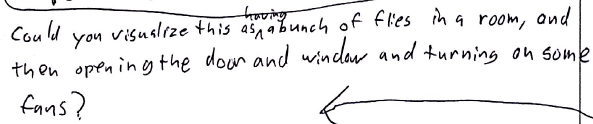 Could you visualize this as having a bunch of flies in a room, and
then opening the door and window and turning on some
fans?